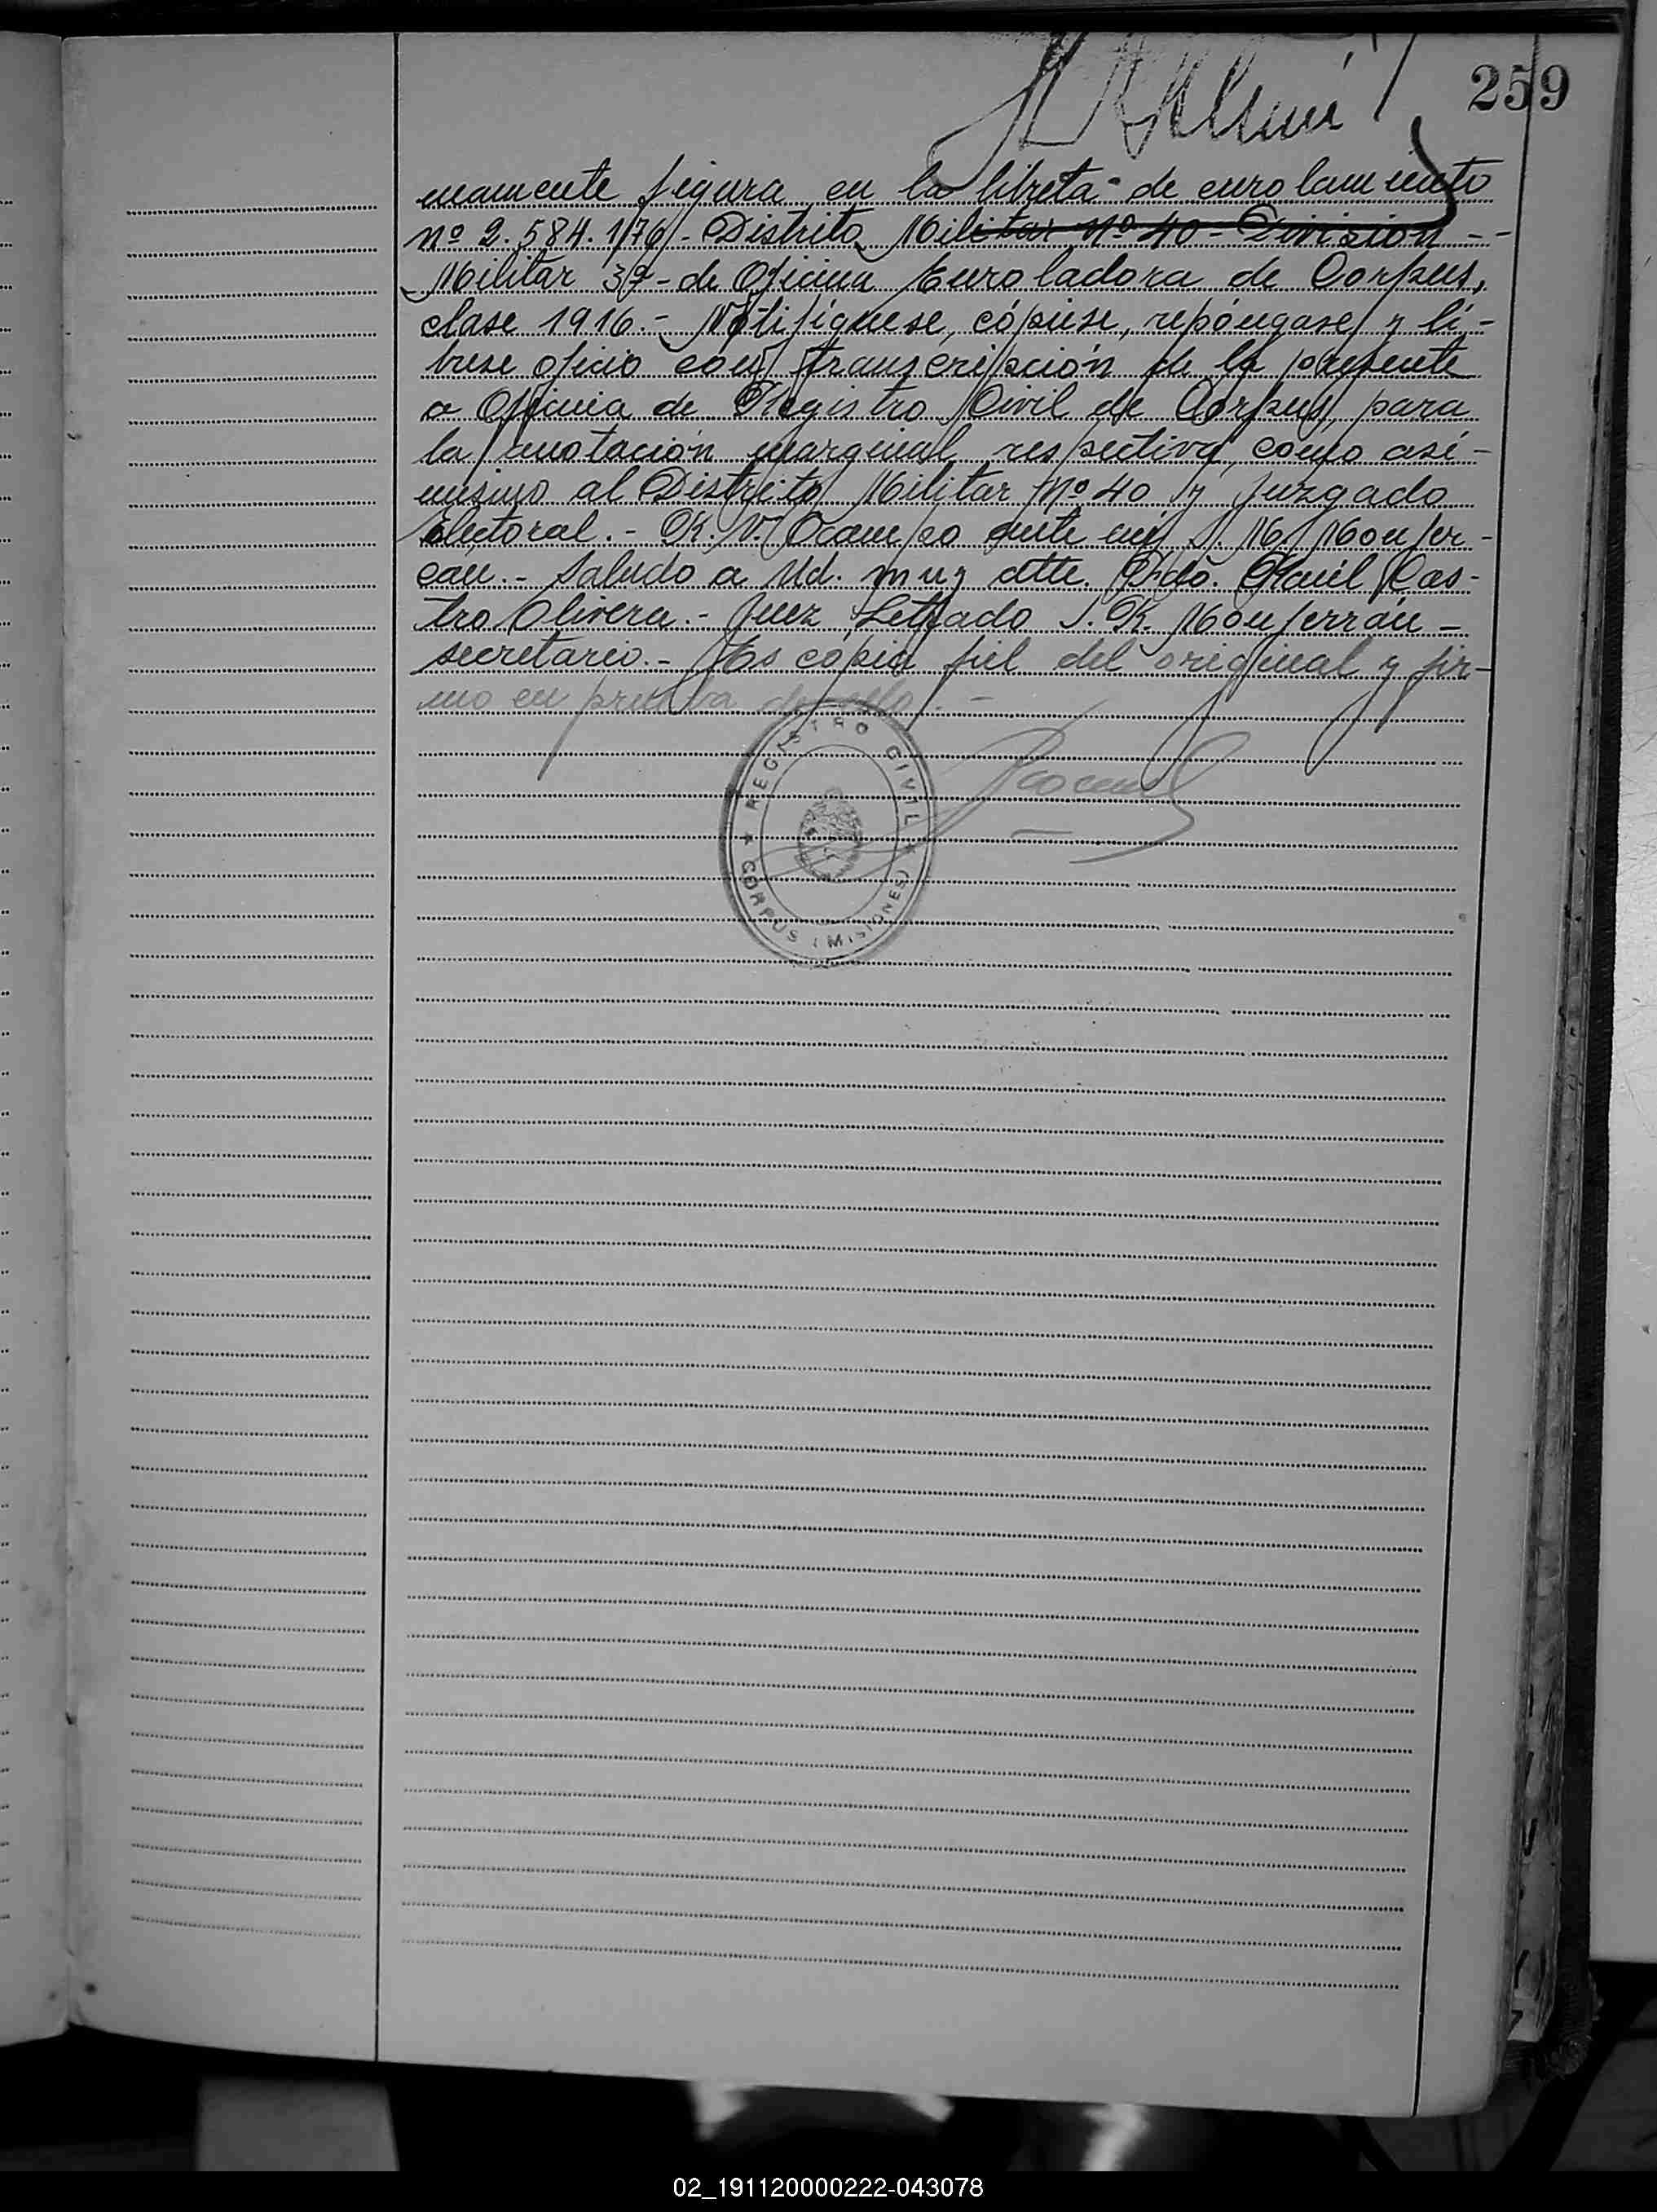 259
namente figura en la libreta de enrolamiento
nº 2.584.176 - Distrito Militar Nº 40 - División -
Militar 3ª - de Oficina Enroladora de Corpus,
clase 1916.- Notifíquese, cópiese, repóngase y lí-
brese oficio con transcripción de la presente
a Oficina de Registro Civil de Corpus, para
la anotación marginal respectiva, como asi-
mismo al Distrito Militar Nº 40 y Juzgado
Electoral.- R. V. Ocampo ante mí J.
can.- Saludo a Ud. muy atte. Fdo. Raúl Cas-
tro Olivera.- Juez Letrado J. R. Monferrán -
secretario.- Es copia fiel del original y fir-
mo en prueba de ello.-
REGISTRO CIVIL
CORPUS (MISIONES)
02_191120000222-043078